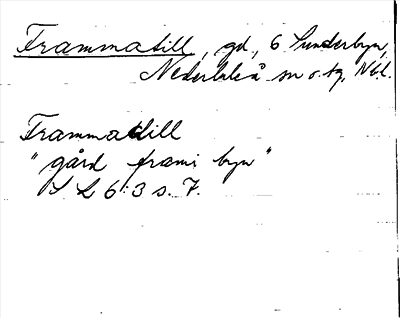 Frammatill, gd, 6 Sunderbyn,
Nederluleå sn o. tg, Nbl.
Frammatill
"gård frami byn"
S L 6:3 s. 7.